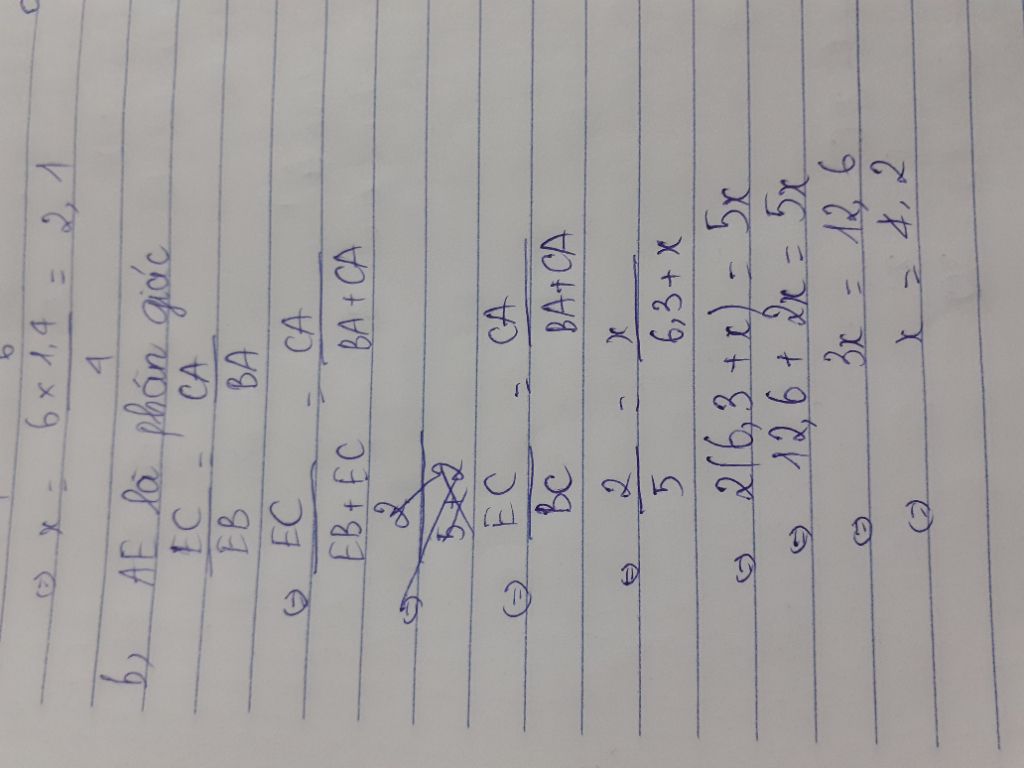 ⇔ x = 6 × 1,4 / 4 = 2,1
b, AE là phân giác
EC / EB = CA / BA
⇔ EC / EB + EC = CA / BA + CA
⇔ 2 / 5 + 2
⇔ EC / BC = CA / BA + CA
⇔ 2 / 5 = x / 6,3 + x
⇔ 2(6,3 + x) = 5x
⇔ 12,6 + 2x = 5x
⇔ 3x = 12,6
⇔ x = 4,2